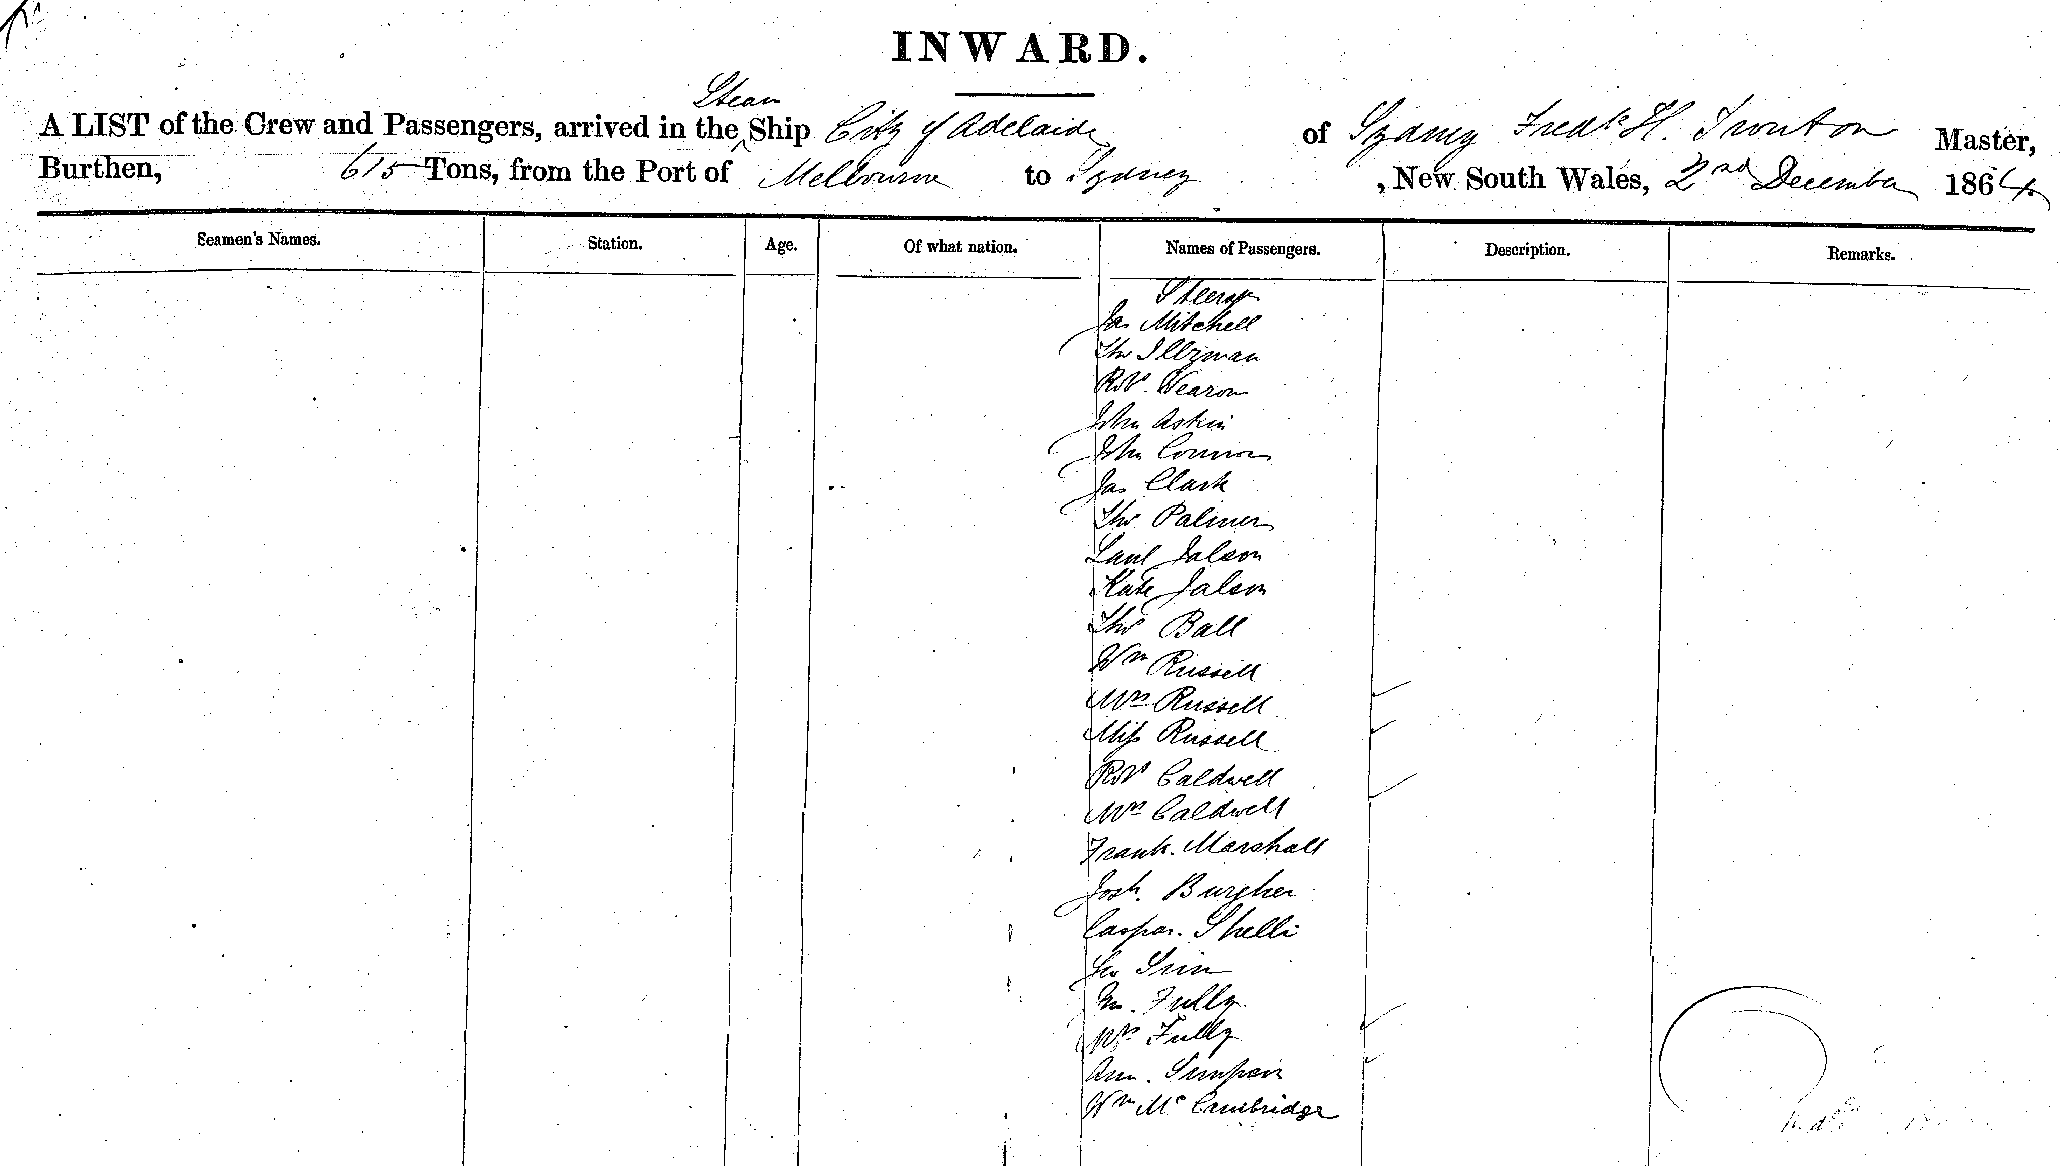 INWARD.
Steam
A LIST of the Crew and Passengers, arrived in the Ship City of Adelaide of Sydney Fredk H. Trouton Master,
Burthen, 615 Tons, from the Port of Melbourne to Sydney , New South Wales, 2nd December 1864
Seamen's Names. Station. Age. Of what nation. Names of Passengers. Description. Remarks.
Steerage
Jas Mitchell
Thos Illzman
Robt Wearon
John Askin
John Connor
Jas Clark
Thos Palmer
Jalson
Kate Jalson
Thos Ball
Wm Russell
Mrs Russell
Miss Russell
Robt Caldwell
Mrs Caldwell
Frank. Marshall
Josh. Burgher
Caspar. Shelli
Sim
M. Fully
Mrs Fully
Ann. Simpson
Wm McCambridge